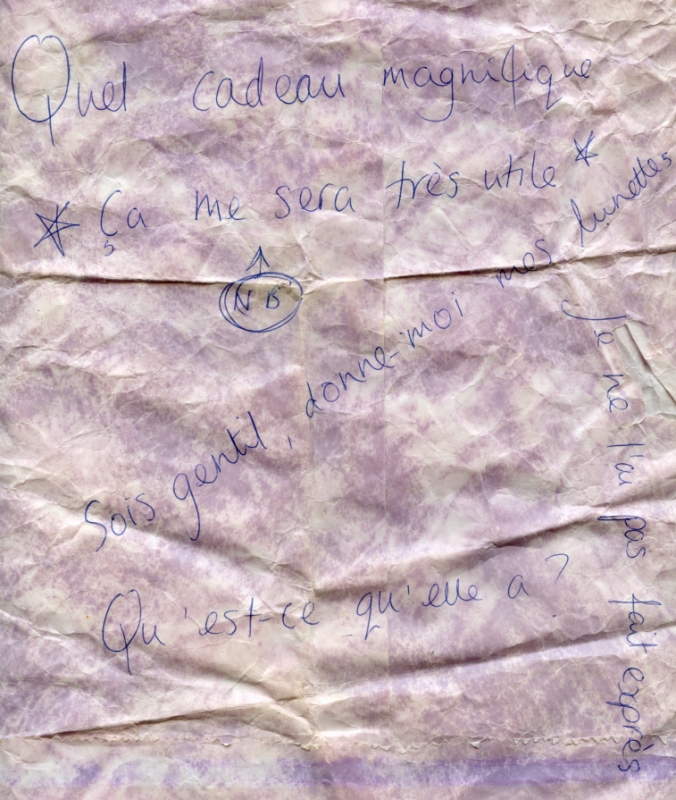 Quel cadeau magnifique
* Ça me sera très utile *
NB
Sois gentil, donne-moi mes lunettes
Je ne l'ai pas fait exprès
Qu'est-ce qu'elle a ?